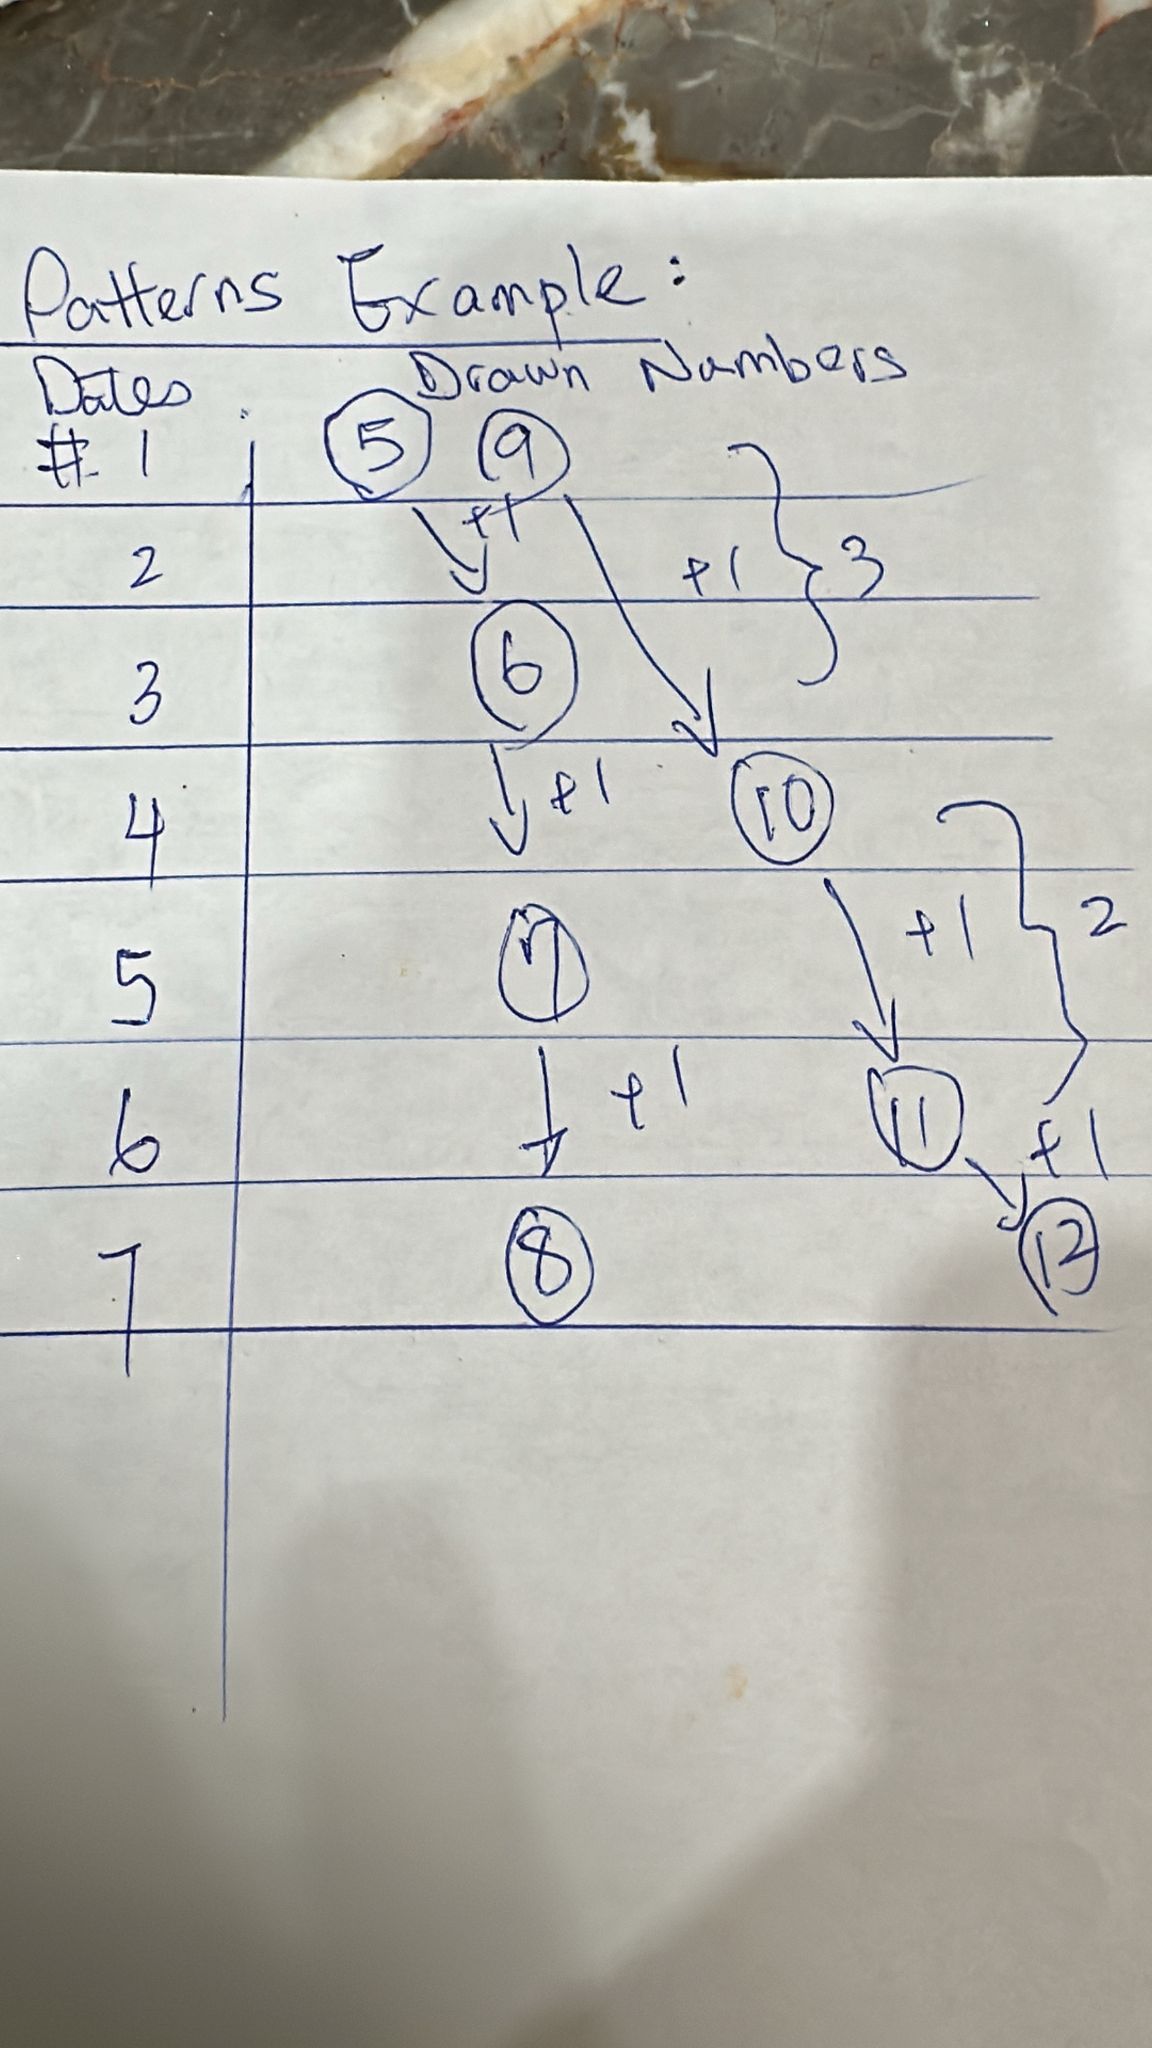 Patterns Example:
Dates Drawn Numbers
# 1 5 9
2 +1 +1 3
3 6
4 +1 10
5 7 +1 2
6 +1 11 +1
7 8 12